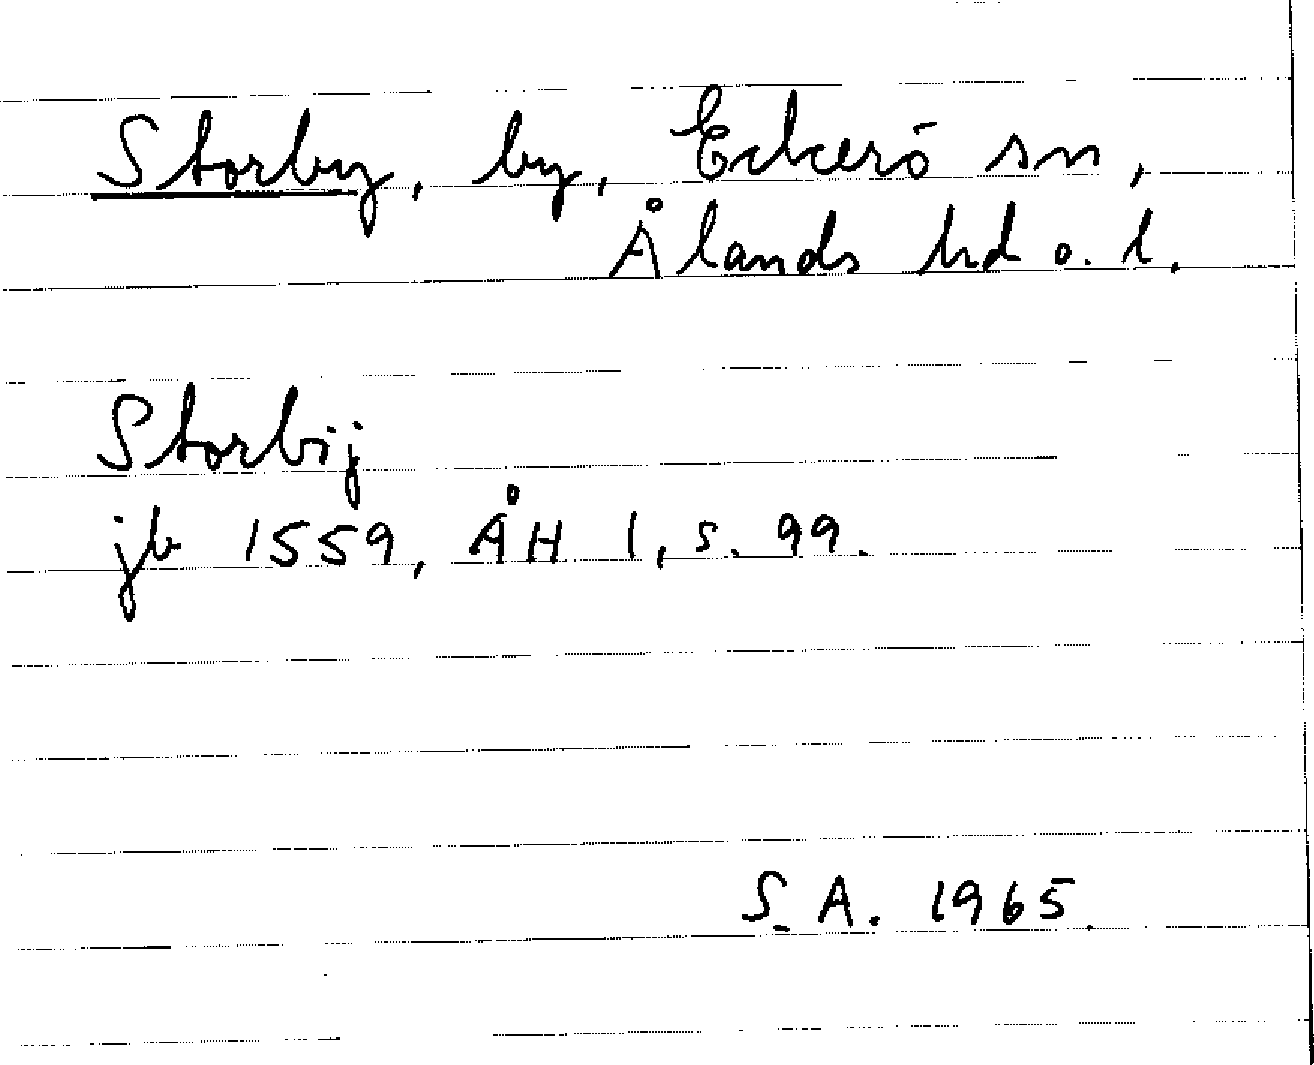 Storby, by, Eckerö sn,
Ålands hd o. l.
Storbij
jb 1559, ÅH 1, s. 99.
S.A. 1965.